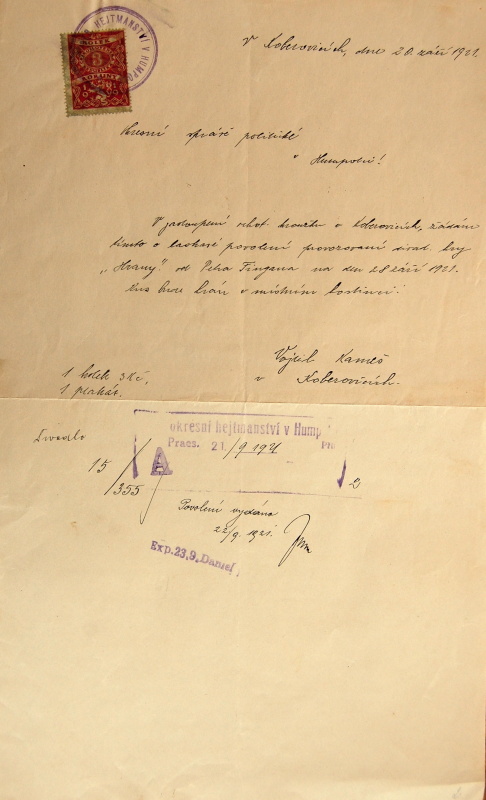 HEJTMANSTVÍ V HUMPO
3
V Koberovicích, dne 20. září 1921.
Okresní správě politické
v Humpolci!
V zastoupení ochot. kroužku v Koberovicích, žádám
tímto o laskavé povolení provozování divad. hry
„Hrany“ od Petra Fingena na den 28 září 1921.
Kus bude hrán v místním hostinci.
Vojtěch Kameš
v Koberovicích.
1 kolek 3 Kč,
1 plakát.
Divadlo
okresní hejtmanství v Hump
Praes. 21/9 1921
A
15/355
2
Povolení vydáno
22/9. 1921.
Exp. 23.9.